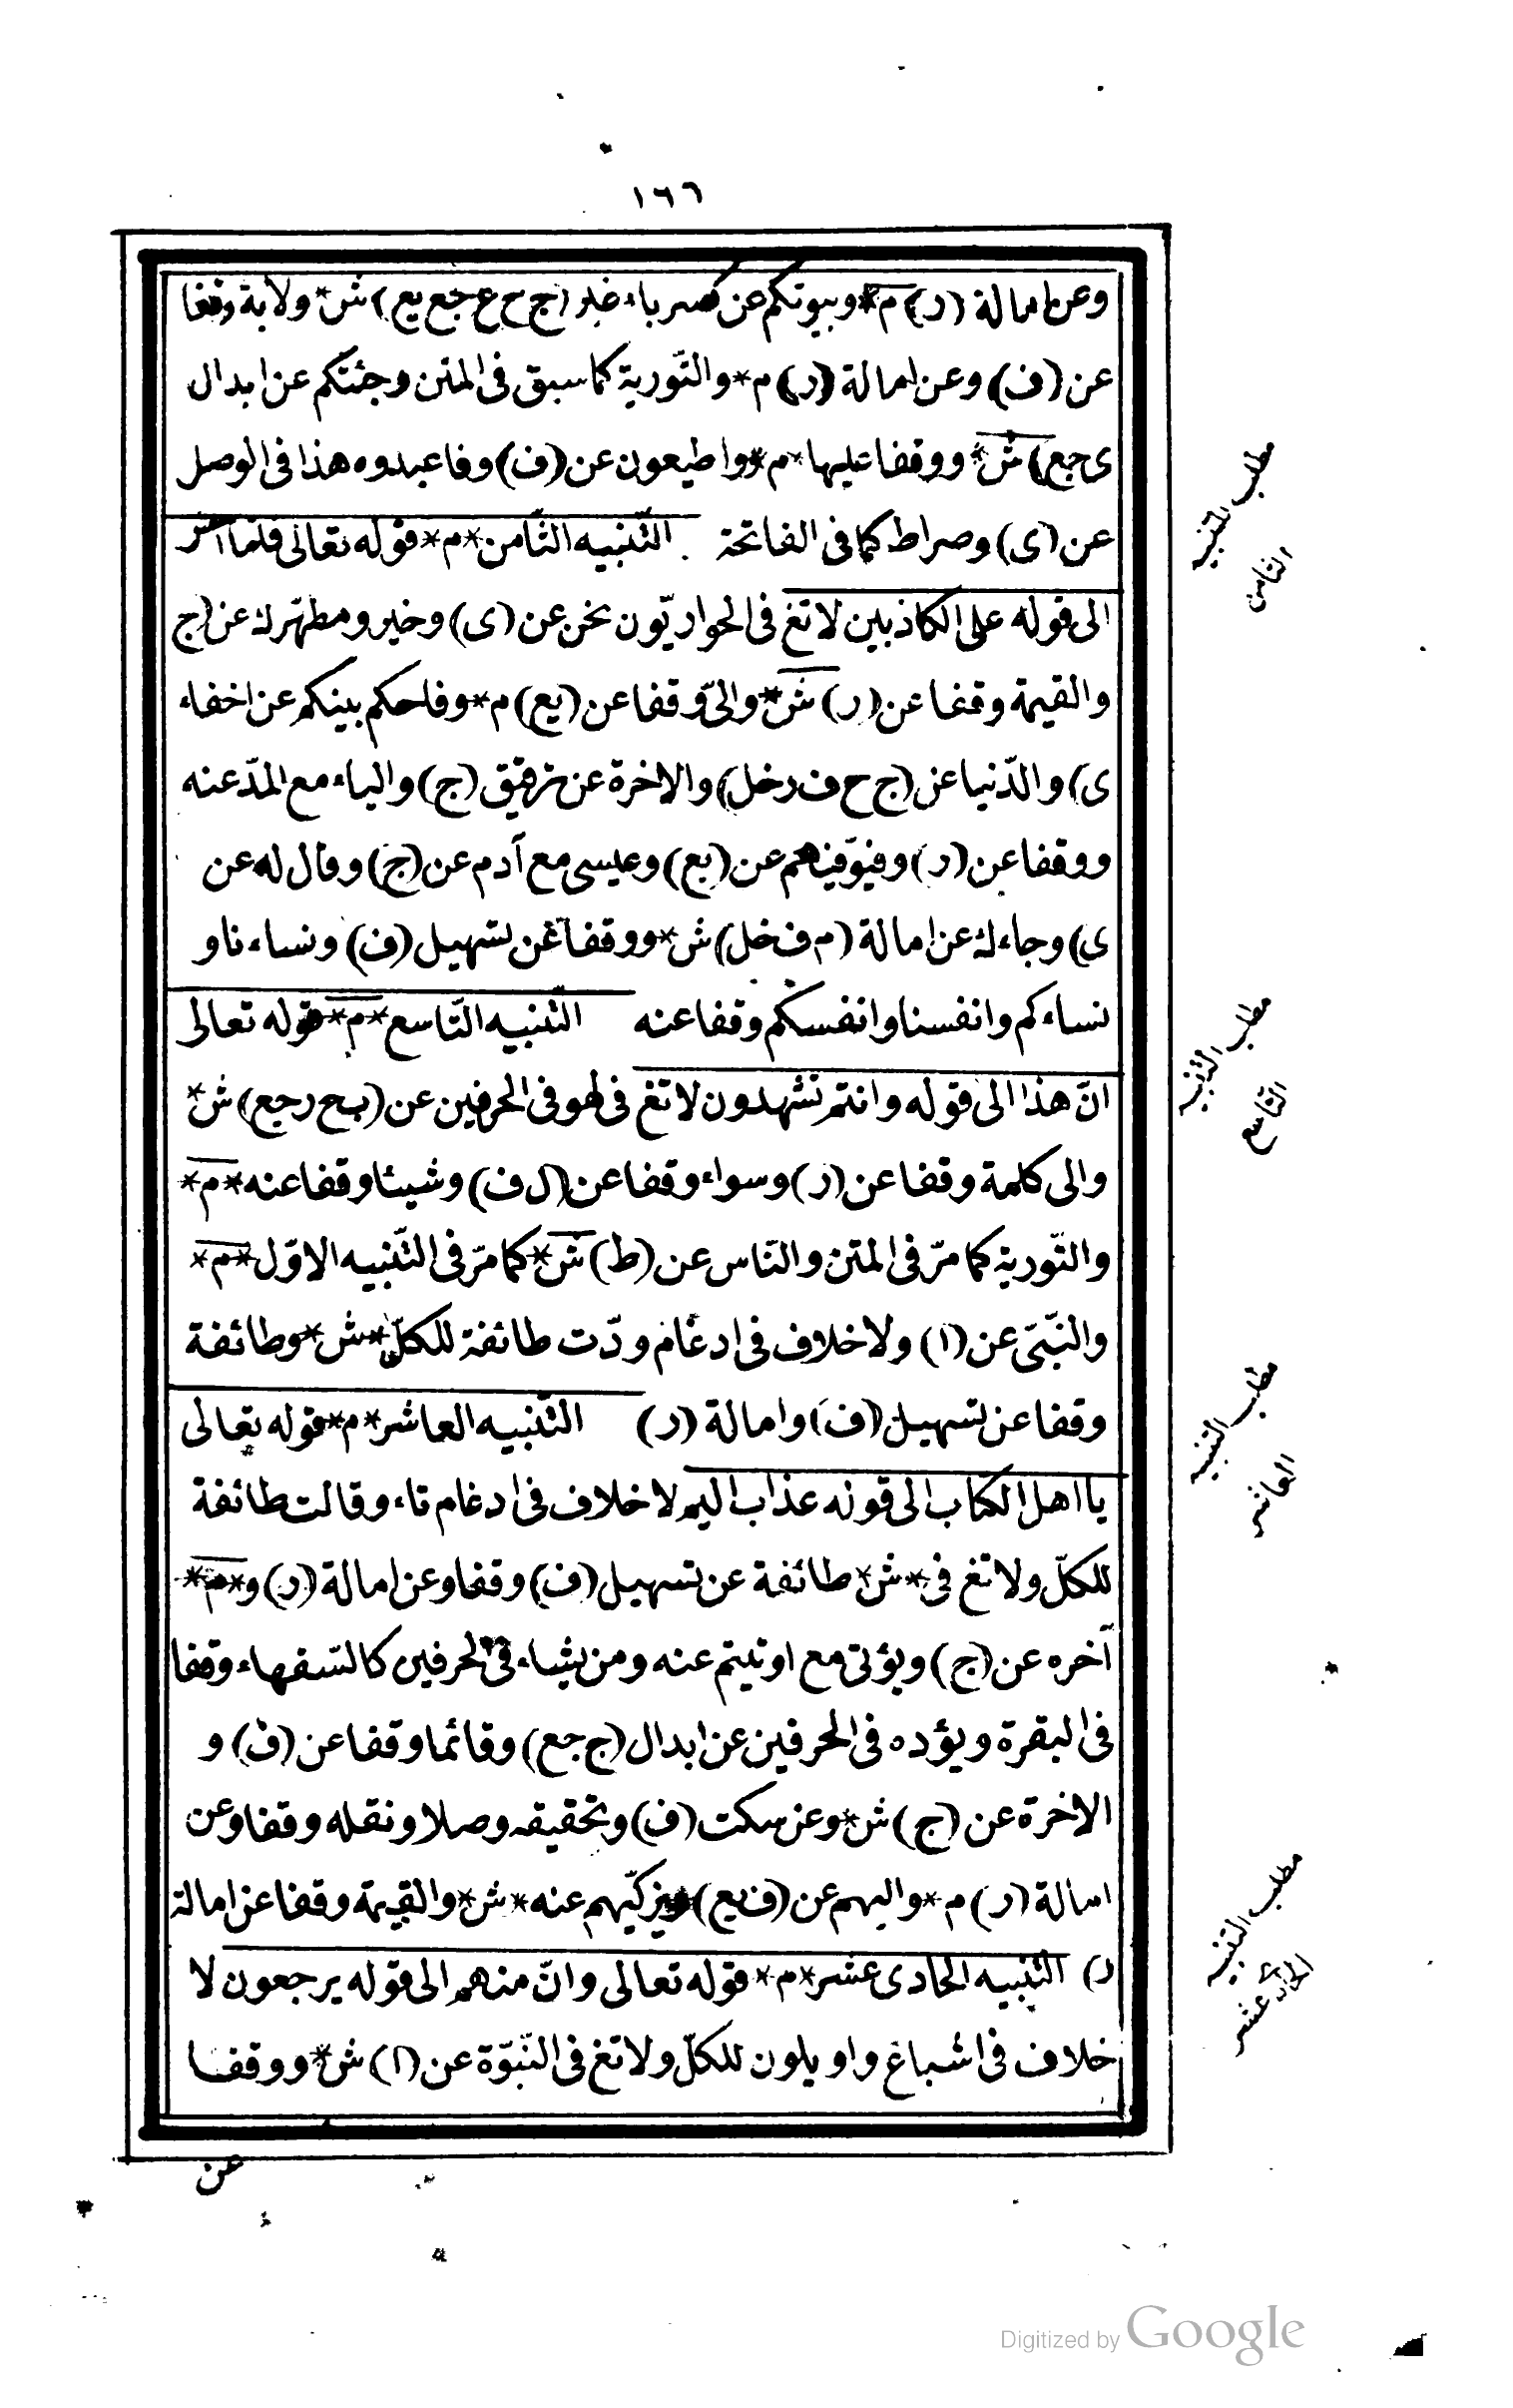 ١٦٦
وعن امالة (ر) م* وبيوتكم عن كسر باء خلد (ج ح ع جع يع) ش* ولاية وقفا
عن (ف) وعن امالة (ر) م* والتّورية كما سبق فى المتن وجئتكم عن ابدال
ى جع) ش* ووقفا عليها* م* واطيعون عن (ف) وفاعبدوه هذا فى الوصل
عن (ى) وصراط كما فى الفاتحة التّنبيه الثّامن* م* قوله تعالى فلمّا احسّ
الى قوله على الكاذبين لا تغ فى الحواريّون نحن عن (ى) وخير ومطهّرك عن (ج
والقيمة وقفا عن (ر) ش* والىّ وقفا عن (يع) م* وفاحكم بينكم عن اخفاء
ى) والدّنيا عن (ج ح ف ر خل) والاخرة عن ترقيق (ج) والباء مع المدّ عنه
ووقفا عن (ر) وفيوّفيهم عن (يع) وعيسى مع آدم عن (ج) وقال له عن
ى) وجاءك عن امالة (م ف خل) ش* ووقفا عن تسهيل (ف) ونساءنا و
نساءكم وانفسنا وانفسكم وقفا عنه التّنبيه التّاسع* م* قوله تعالى
انّ هذا الى قوله وانتم تشهدون لا تغ فى لهو فى الحرفين عن (ب ح ر جع) ش*
والى كلمة وقفا عن (ر) وسواء وقفا عن (ل ف) وشيئا وقفا عنه* م*
والتّورية كما مرّ فى المتن والنّاس عن (ط) ش* كما مرّ فى التّنبيه الاوّل* م*
والنّبىّ عن (ا) ولا خلاف فى ادغام ودّت طائفة للكلّ* ش* وطائفة
وقفا عن تسهيل (ف) وامالة (ر) التّنبيه العاشر* م* قوله تعالى
يا اهل الكتاب الى قوله عذاب اليم لا خلاف فى ادغام تاء وقالت طائفة
للكلّ ولا تغ فى* ش* طائفة عن تسهيل (ف) وقفا وعن امالة (ر) و* م*
آخره عن (ج) ويؤتى مع اوتيتم عنه ومن يشاء فى الحرفين كالسّفهاء وقفا
فى البقرة ويؤده فى الحرفين عن ابدال (ج جع) وقائما وقفا عن (ف) و
الاخرة عن (ج) ش* وعن سكت (ف) وتحقيقه وصلا ونقله وقفا وعن
امالة (ر) م* واليهم عن (ف يع) ويزكّيهم عنه* ش* والقيمة وقفا عن امالة
ر) التّنبيه الحادى عشر* م* قوله تعالى وانّ منهم الى قوله يرجعون لا
خلاف فى اشباغ واو يلون للكلّ ولا تغ فى النّبوّة عن (ا) ش* ووقفا
عن
مطلب التّنبيه
الثّامن
مطلب التّنبيه
التّاسع
مطلب التّنبيه
العاشر
مطلب التّنبيه
الحادى عشر
Digitized by Google